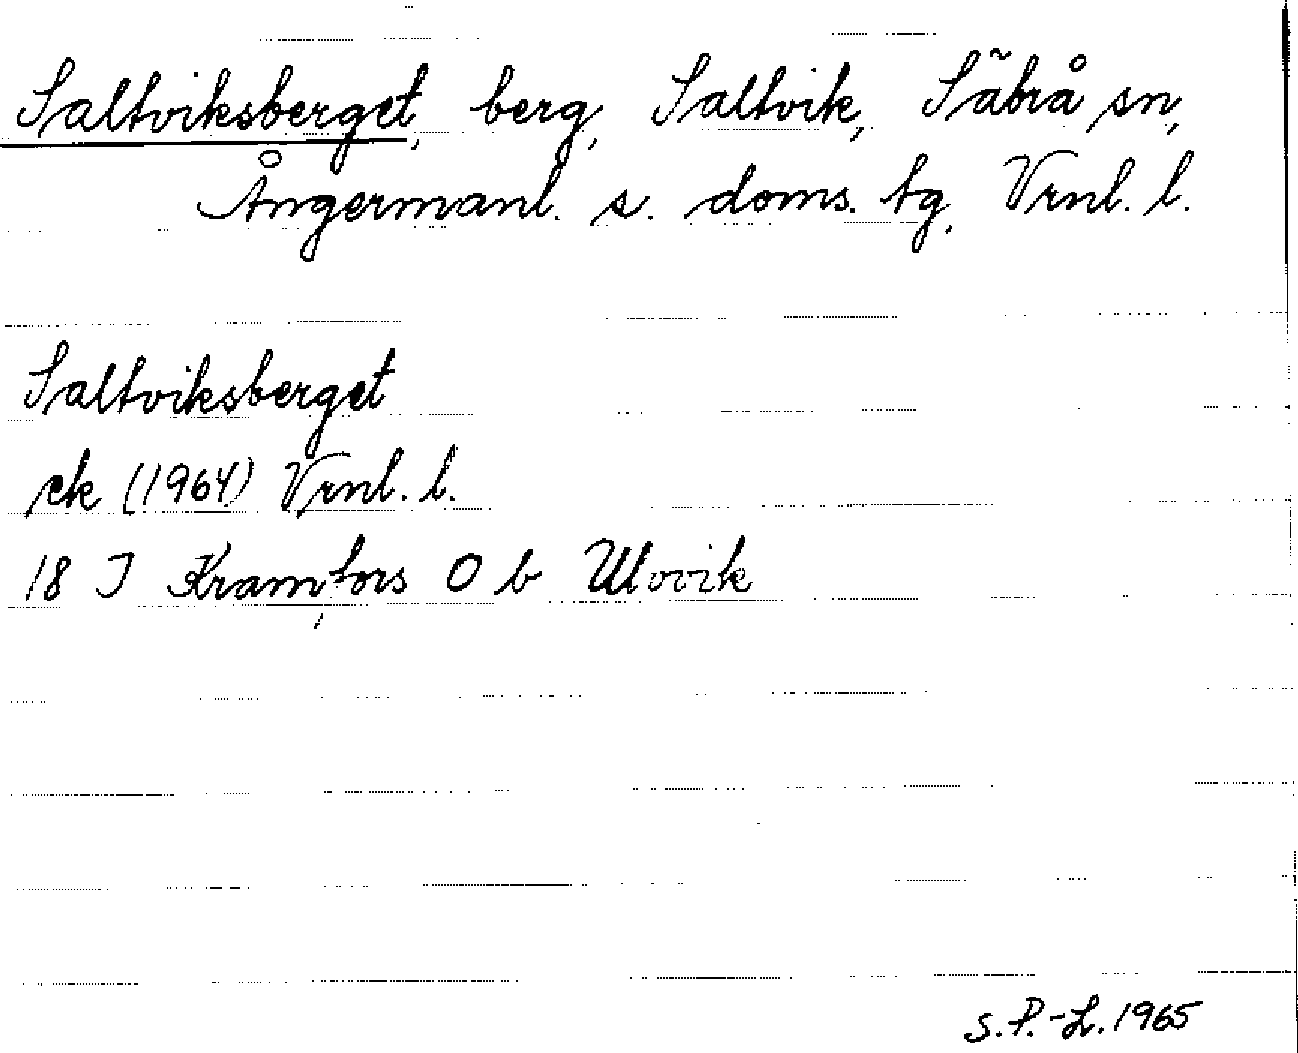 Saltviksberget, berg, Saltvik, Säbrå sn,
Ångermanl. s. doms. tg, Vrnl. l.
Saltviksberget
ek (1964) Vrnl. l.
18 I Kramfors O b Ulvvik
S. P.-L. 1965